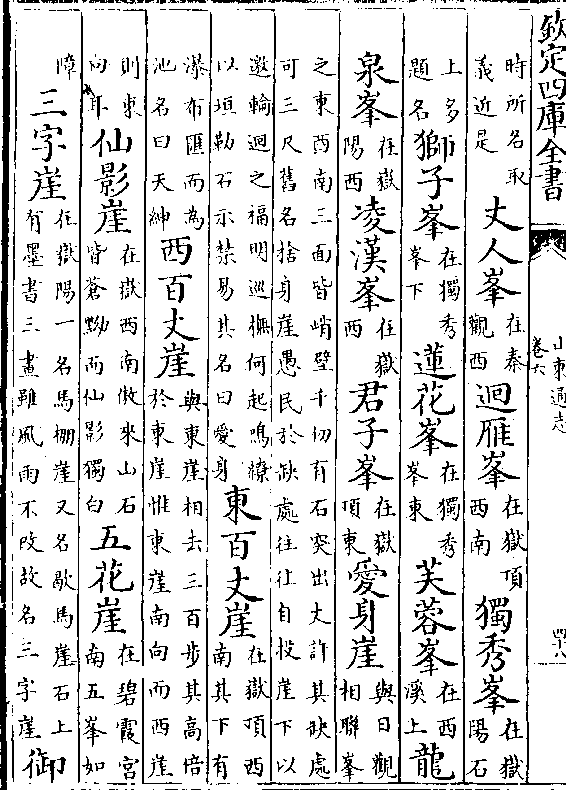 欽定四庫全書
山東通志
卷六
四十八
時所名取義近是 丈人峯 在泰觀西 迴雁峯 在嶽頂西南 獨秀峯 在嶽陽石
上多題名 獅子峯 在獨秀峯下 蓮花峯 在獨秀峯東 芙蓉峯 在西溪上 龍
泉峯 在嶽陽西 凌漢峯 在嶽西 君子峯 在嶽頂東 愛身崖 與日觀相聯峯
之東西南三面皆峭壁千仞有石突出丈許其缺處可三尺舊名捨身崖愚民於缺處往往自投崖下以
邀輪迴之福明巡撫何起鳴繚以垣勒石示禁易其名曰愛身 東百丈崖 在嶽頂西南其下有
瀑布匯而為池名曰天紳 西百丈崖 與東崖相去三百步其高倍於東崖惟東崖南向而西崖
則東向耳 仙影崖 在嶽西南傲來山石皆蒼黝而仙影獨白 五花崖 在碧霞宮南五峯如
障 三字崖 在嶽陽一名馬棚崖又名歇馬崖石上有墨書三畫雖風雨不改故名三字崖 御